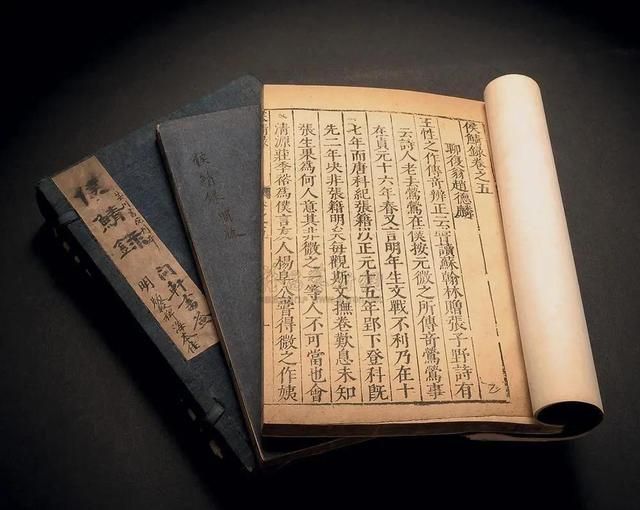 侯鯖錄卷之五
聊復翁趙德麟
王性之作傳奇辨正云嘗讀蘇翰林贈張子野詩有
云詩人老去鶯鶯在僕按元微之所傳奇鶯鶯事
在貞元十六年春又言明年生文戰不利乃在十
七年而唐科記張籍以正元十五年郢下登科既
先二年決非張籍明矣每觀斯文撫卷歎息未知
張生果為何人意其非微之一等人不可當也會
清源莊季裕為僕言友人楊阜公嘗得微之作姨
侯鯖錄 明版
侯鯖錄
明